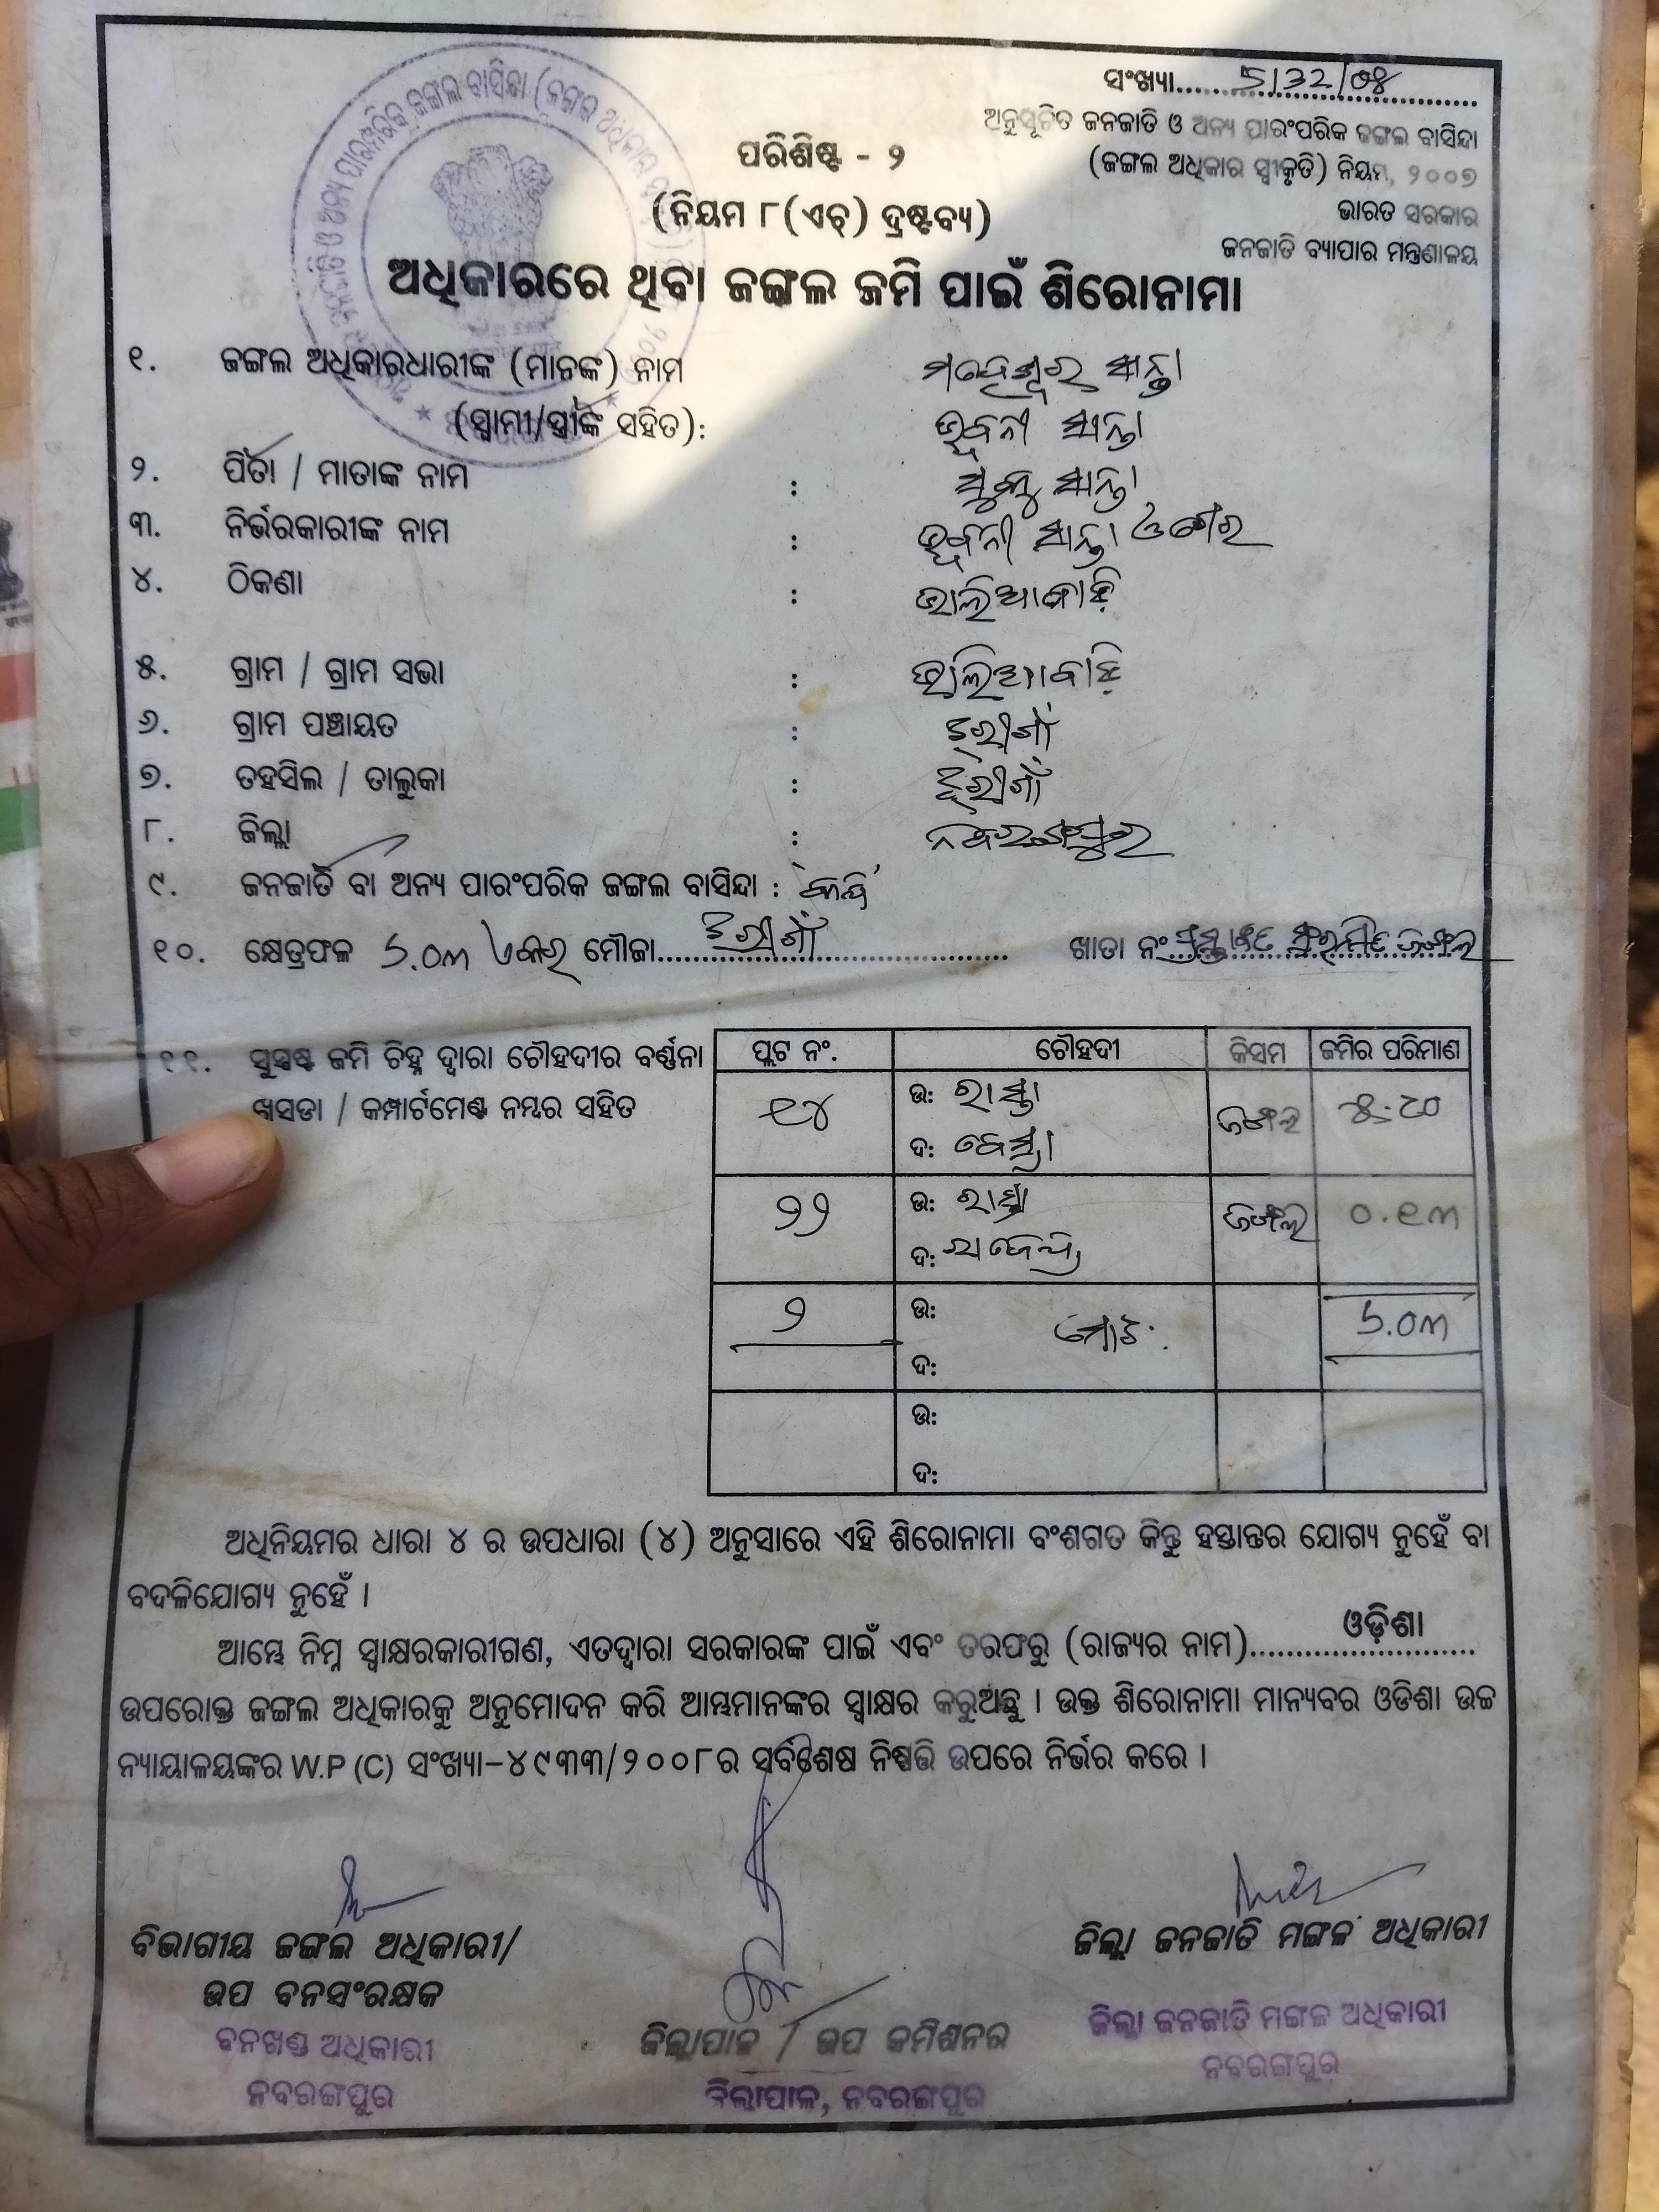 ସଂଖ୍ୟା..................
ଅନୁସୂଚିତ ଜନଜାତି ଓ ଅନ୍ୟ ପାରଂପରିକ ଜଙ୍ଗଲ ବାସିନ୍ଦା
(ଜଙ୍ଗଲ ଅଧିକାର ସ୍ୱୀକୃତି) ନିୟମ, ୨୦୦୭
ଭାରତ ସରକାର
ଜନଜାତି ବ୍ୟାପାର ମନ୍ତ୍ରଣାଳୟ
ପରିଶିଷ୍ଟ - ୨
(ନିୟମ ୮(ଏଚ୍) ଦ୍ରଷ୍ଟବ୍ୟ)
ଅଧିକାରରେ ଥିବା ଜଙ୍ଗଲ ଜମି ପାଇଁ ଶିରୋନାମା
୧. ଜଙ୍ଗଲ ଅଧିକାରଧାରୀଙ୍କ (ମାନଙ୍କ) ନାମ ମହେଶ୍ୱର ସାନ୍ତା
(ସ୍ୱାମୀ/ସ୍ତ୍ରୀଙ୍କ ସହିତ): ସାନ୍ତା
୨. ପିତା / ମାତାଙ୍କ ନାମ : ସାନ୍ତା
୩. ନିର୍ଭରକାରୀଙ୍କ ନାମ : ସାନ୍ତା
୪. ଠିକଣା :
୫. ଗ୍ରାମ / ଗ୍ରାମ ସଭା :
୬. ଗ୍ରାମ ପଞ୍ଚାୟତ : ଝରୀଗାଁ
୭. ତହସିଲ / ତାଲୁକା : ଝରୀଗାଁ
୮. ଜିଲ୍ଲା : ନବରଙ୍ଗପୁର
୯. ଜନଜାତି ବା ଅନ୍ୟ ପାରଂପରିକ ଜଙ୍ଗଲ ବାସିନ୍ଦା :
୧୦. କ୍ଷେତ୍ରଫଳ ୬.୦୩ ଏକର ମୌଜା..........ଝରୀଗାଁ.......... ଖାତା ନଂ. ପ୍ରସ୍ତାବିତ ସଂରକ୍ଷିତ ଜଙ୍ଗଲ
୧୧. ସୁସ୍ପଷ୍ଟ ଜମି ଚିହ୍ନ ଦ୍ୱାରା ଚୌହଦୀର ବର୍ଣ୍ଣନା
ଖସଡା / କମ୍ପାର୍ଟମେଣ୍ଟ ନମ୍ବର ସହିତ
ପ୍ଲଟ ନଂ. ଚୌହଦୀ କିସମ ଜମିର ପରିମାଣ
୧୪ ଉ: ରାସ୍ତା ଜଙ୍ଗଲ
ଦ:
୨୨ ଉ: ରାସ୍ତା ଜଙ୍ଗଲ ୦.୧୩
ଦ:
୨ ଉ: ମୋଟ: ୬.୦୩
ଦ:
ଉ:
ଦ:
ଅଧିନିୟମର ଧାରା ୪ ର ଉପଧାରା (୪) ଅନୁସାରେ ଏହି ଶିରୋନାମା ବଂଶଗତ କିନ୍ତୁ ହସ୍ତାନ୍ତର ଯୋଗ୍ୟ ନୁହେଁ ବା
ବଦଳିଯୋଗ୍ୟ ନୁହେଁ ।
ଆମ୍ଭେ ନିମ୍ନ ସ୍ୱାକ୍ଷରକାରୀଗଣ, ଏତଦ୍ୱାରା ସରକାରଙ୍କ ପାଇଁ ଏବଂ ତରଫରୁ (ରାଜ୍ୟର ନାମ).......ଓଡ଼ିଶା.......
ଉପରୋକ୍ତ ଜଙ୍ଗଲ ଅଧିକାରକୁ ଅନୁମୋଦନ କରି ଆମ୍ଭମାନଙ୍କର ସ୍ୱାକ୍ଷର କରୁଅଛୁ । ଉକ୍ତ ଶିରୋନାମା ମାନ୍ୟବର ଓଡିଶା ଉଚ୍ଚ
ନ୍ୟାୟାଳୟଙ୍କର W.P (C) ସଂଖ୍ୟା-୪୯୩୩/୨୦୦୮ର ସର୍ବଶେଷ ନିଷ୍ପତ୍ତି ଉପରେ ନିର୍ଭର କରେ ।
ବିଭାଗୀୟ ଜଙ୍ଗଲ ଅଧିକାରୀ/
ଉପ ବନସଂରକ୍ଷକ
ବନଖଣ୍ଡ ଅଧିକାରୀ
ନବରଙ୍ଗପୁର
ଜିଲ୍ଲାପାଳ / ଉପ କମିଶନର
ଜିଲ୍ଲାପାଳ, ନବରଙ୍ଗପୁର
ଜିଲ୍ଲା ଜନଜାତି ମଙ୍ଗଳ ଅଧିକାରୀ
ଜିଲ୍ଲା ଜନଜାତି ମଙ୍ଗଳ ଅଧିକାରୀ
ନବରଙ୍ଗପୁର